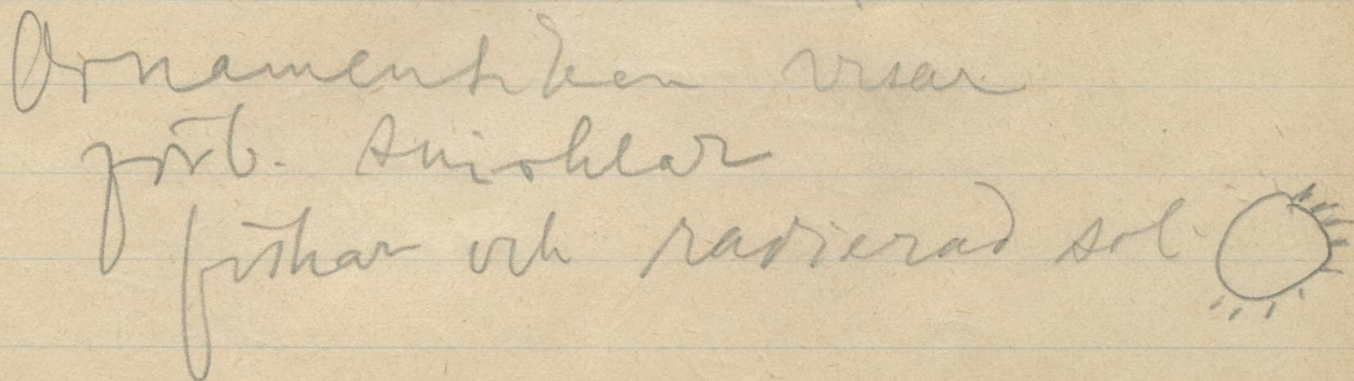 Ornamentiken visar
förb. snirklar
fiskar och radierad sol